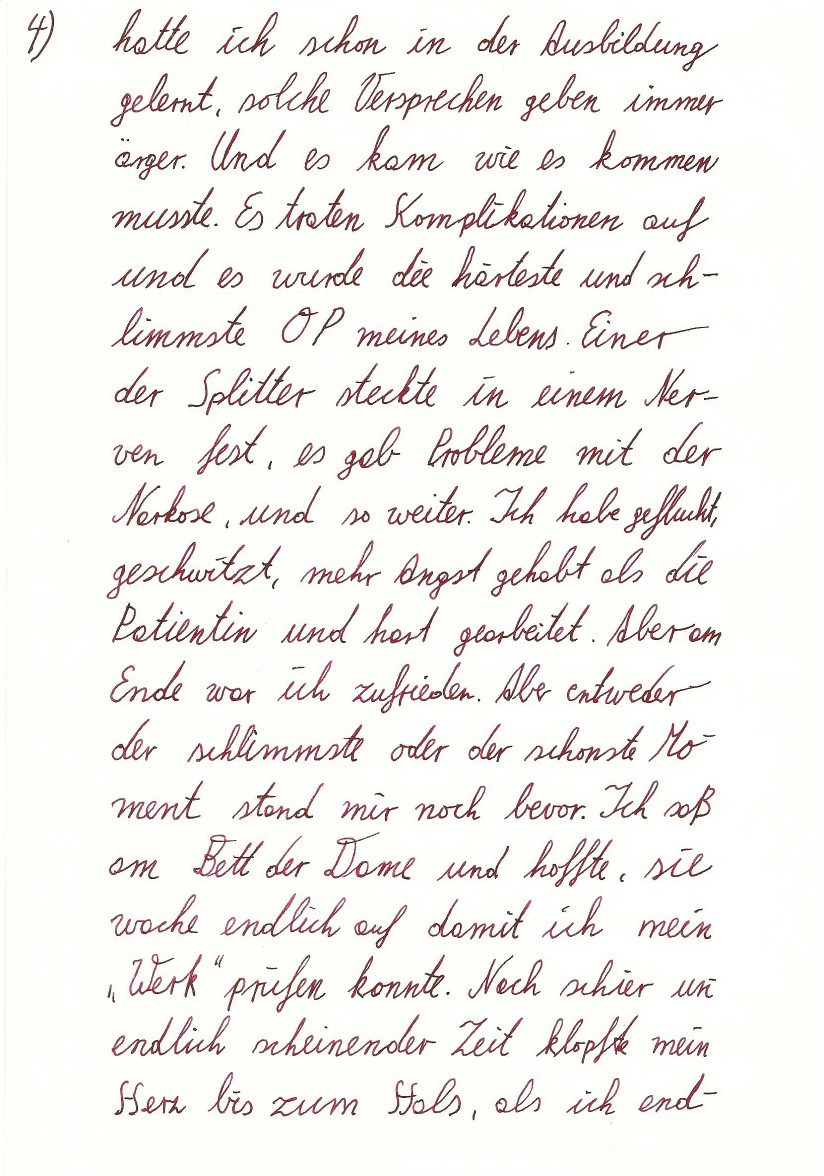 4) hatte ich schon in der Ausbildung
gelernt, solche Versprechen geben immer
ärger. Und es kam wie es kommen
musste. Es traten Komplikationen auf
und es wurde die härteste und sch-
limmste OP meines Lebens. Einer
der Splitter steckte in einem Ner-
ven fest, es gab Probleme mit der
Narkose, und so weiter. Ich habe geflucht,
geschwitzt, mehr Angst gehabt als die
Patientin und hart gearbeitet. Aber am
Ende war ich zufrieden. Aber entweder
der schlimmste oder der schönste Mo-
ment stand mir noch bevor. Ich saß
am Bett der Dame und hoffte, sie
wache endlich auf damit ich mein
„Werk“ prüfen konnte. Nach schier un-
endlich scheinender Zeit klopfte mein
Herz bis zum Hals, als ich end-